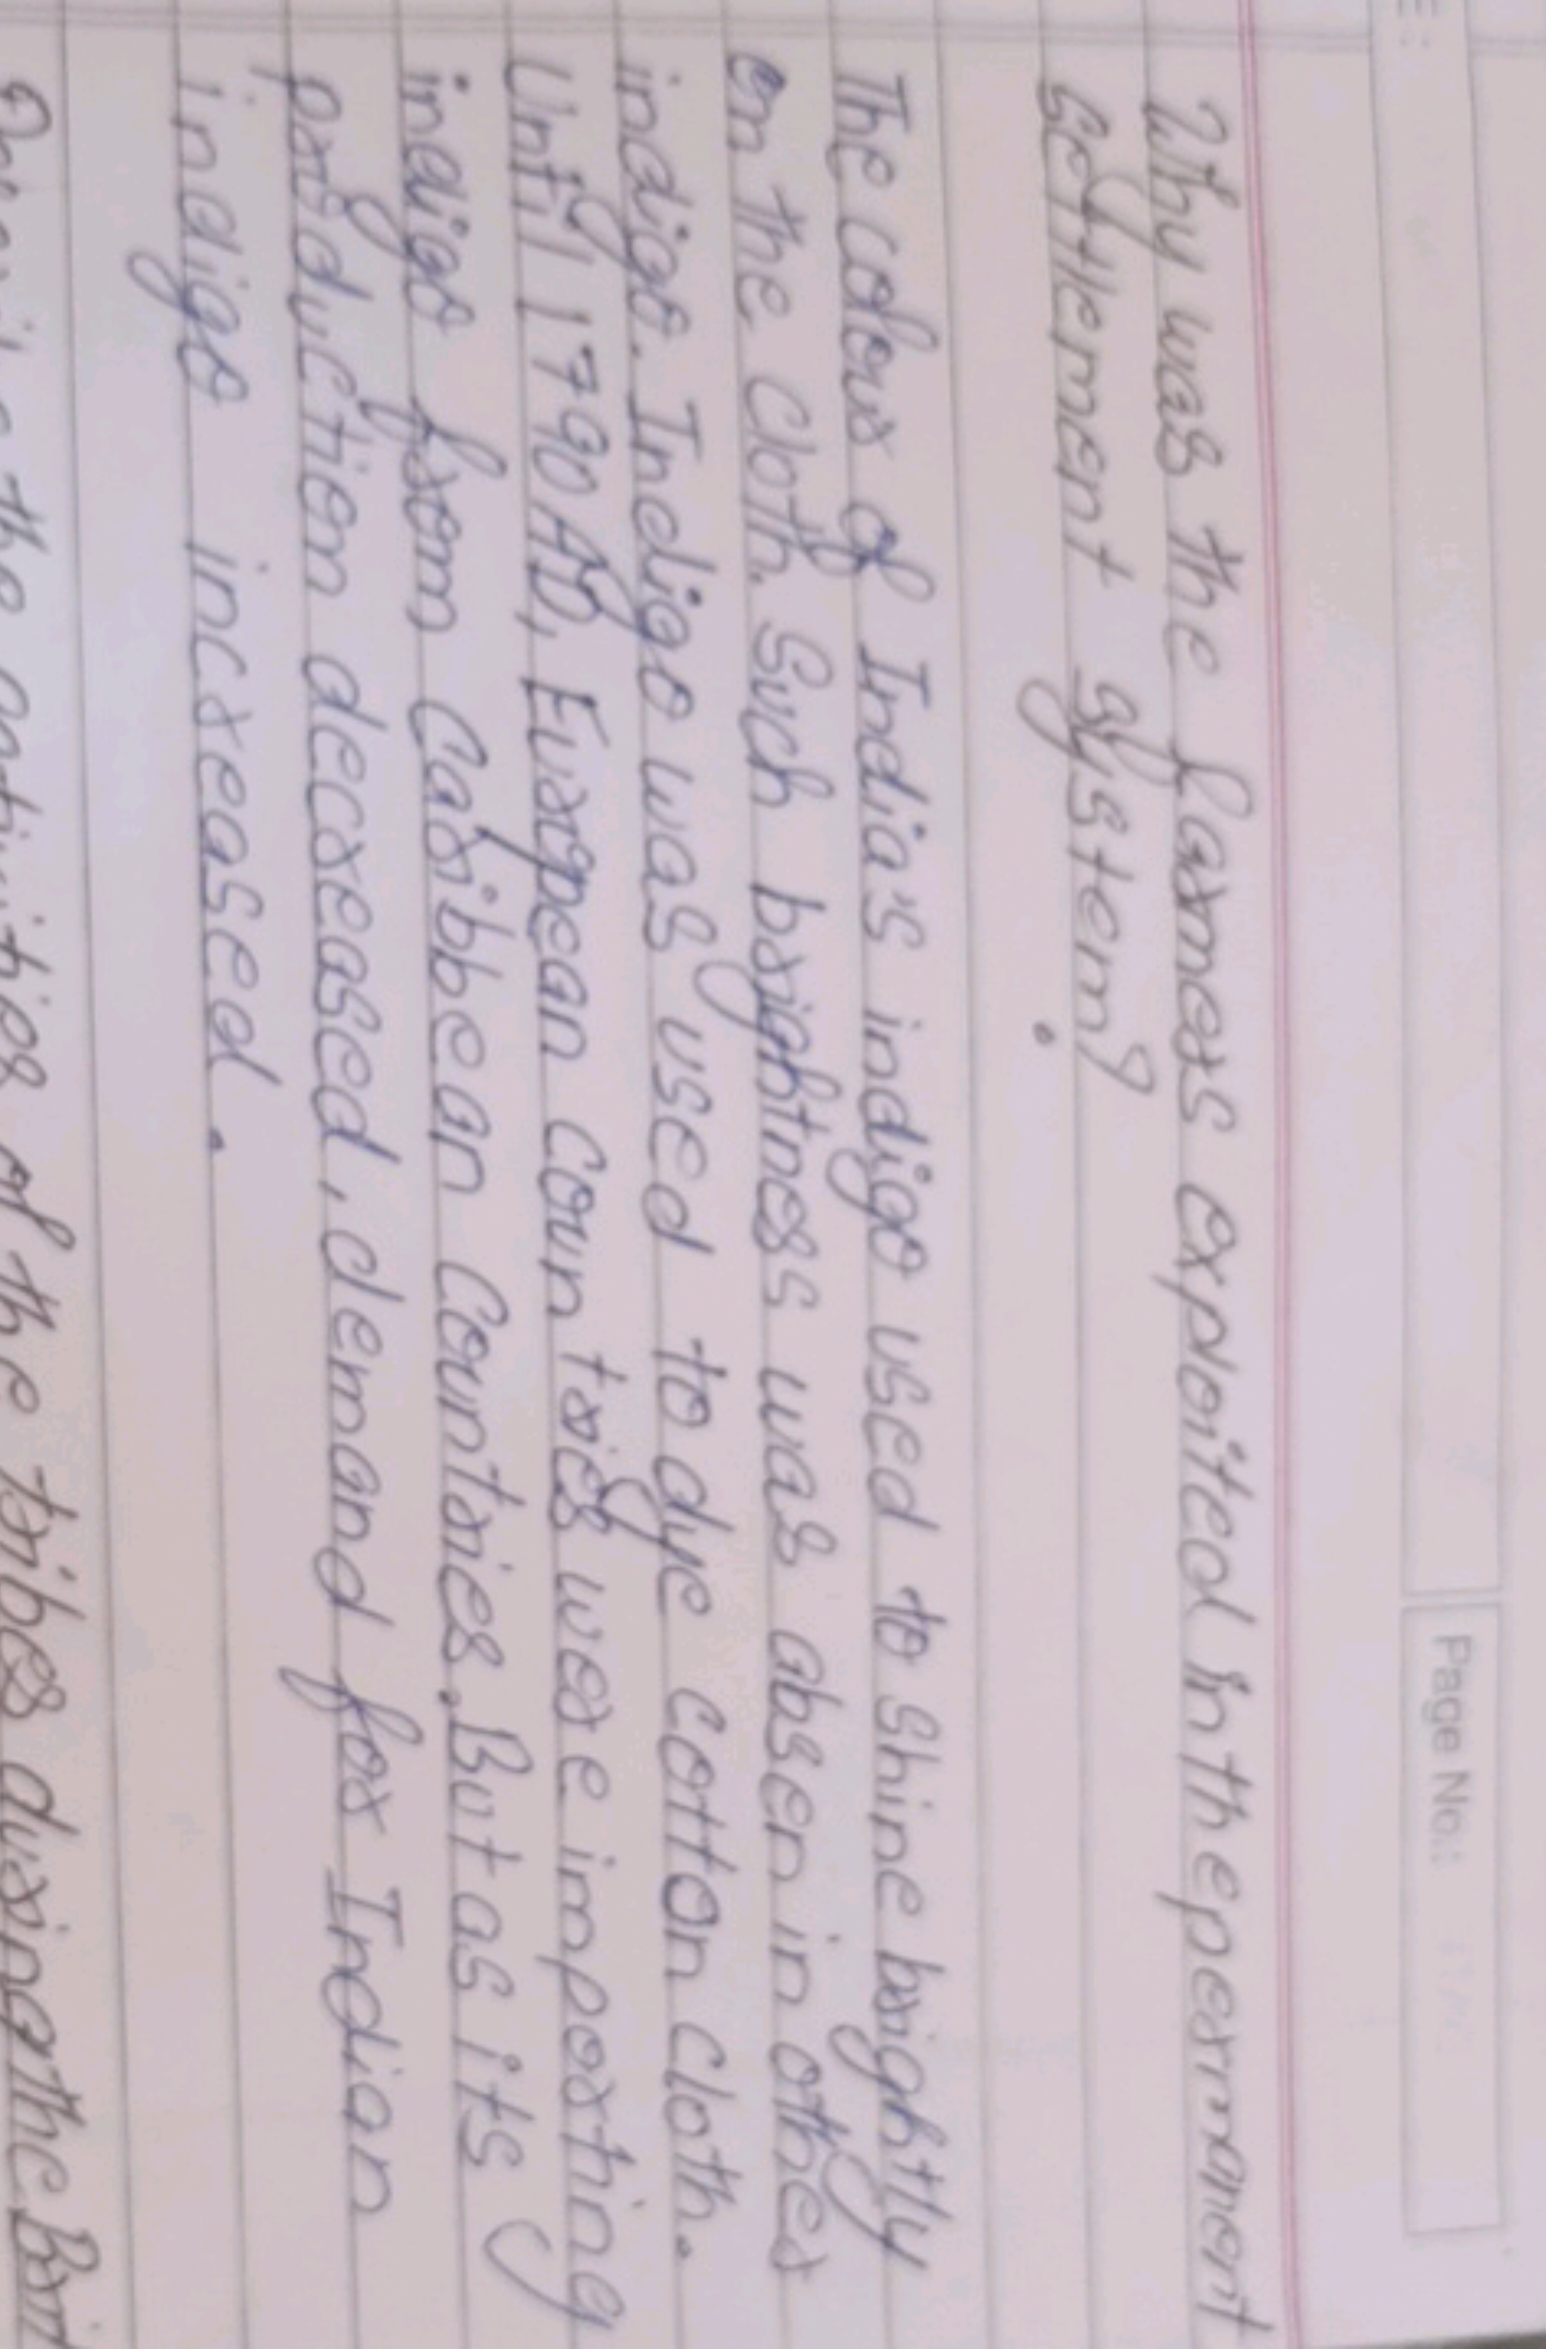 Page No.:
Why was the farmers exploited in the permanent
settlement system?
The colour of India's indigo used to shine brightly
on the cloth. Such brightness was absen in other
indigo. Indigo was used to dye cotton cloth.
Until 1790 AD, European countries were importing
indigo from Caribbean countries. But as its
production decreased, demand for Indian
indigo increased.
the activities of the tribes during the Brit